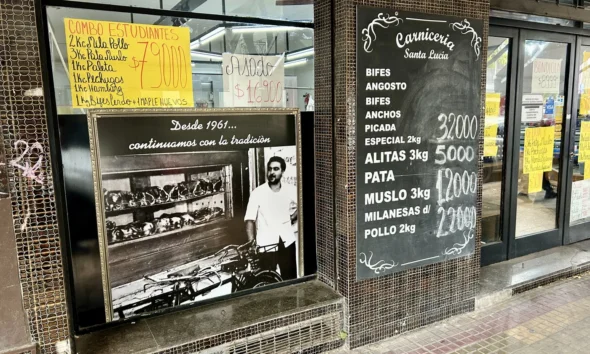 COMBO ESTUDIANTES
2Kc Mila Pollo
3Kc Pata Muslo
1Kc Paleta
1Kc Pechugas
1Kc Hamburg
1Kc Bifes Cerdo + IMAPLE HUEVOS
$79000
Asado
$16900
Desde 1961...
continuamos con la tradición
Carniceria
Santa Lucia
BIFES
ANGOSTO
BIFES
ANCHOS
PICADA
ESPECIAL 2kg 32000
ALITAS 3kg 5000
PATA
MUSLO 3kg 12000
MILANESAS d/
POLLO 2kg 22000